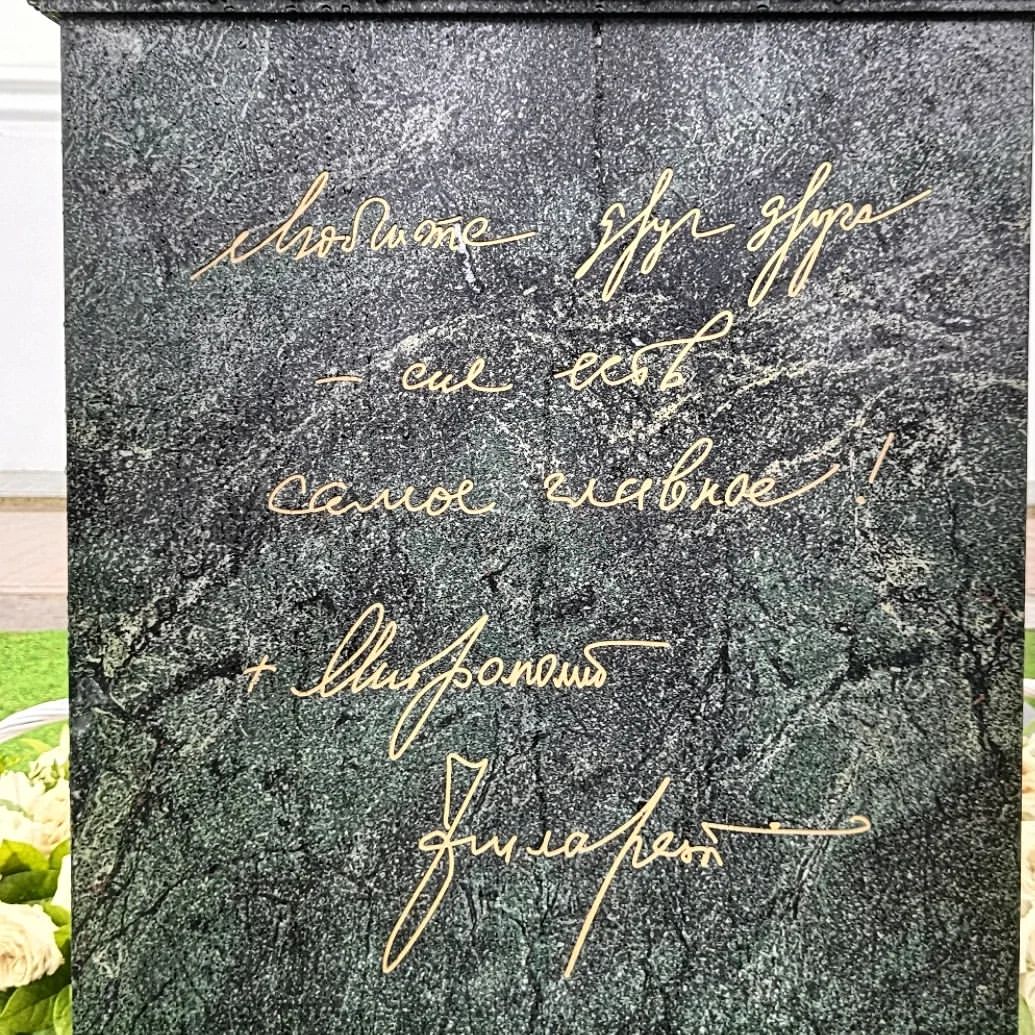 Любите друг друга
– сие есть
самое главное!
+ Митрополит
Филарет